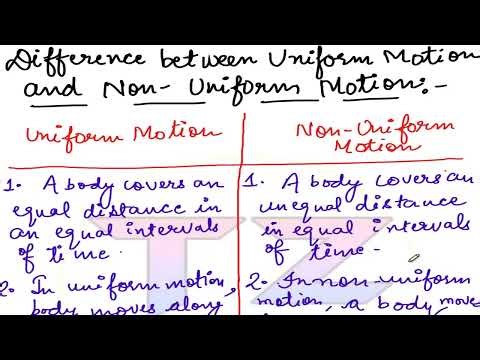 Difference between Uniform Motion
and Non-Uniform Motion:-
Uniform Motion
Non-Uniform
Motion
1. A body covers an
equal distance in
an equal intervals
of time.
2. In uniform motion,
body moves along
1. A body covers an
unequal distance
in equal intervals
of time-
2. In non-uniform
motion, a body moves
TZ